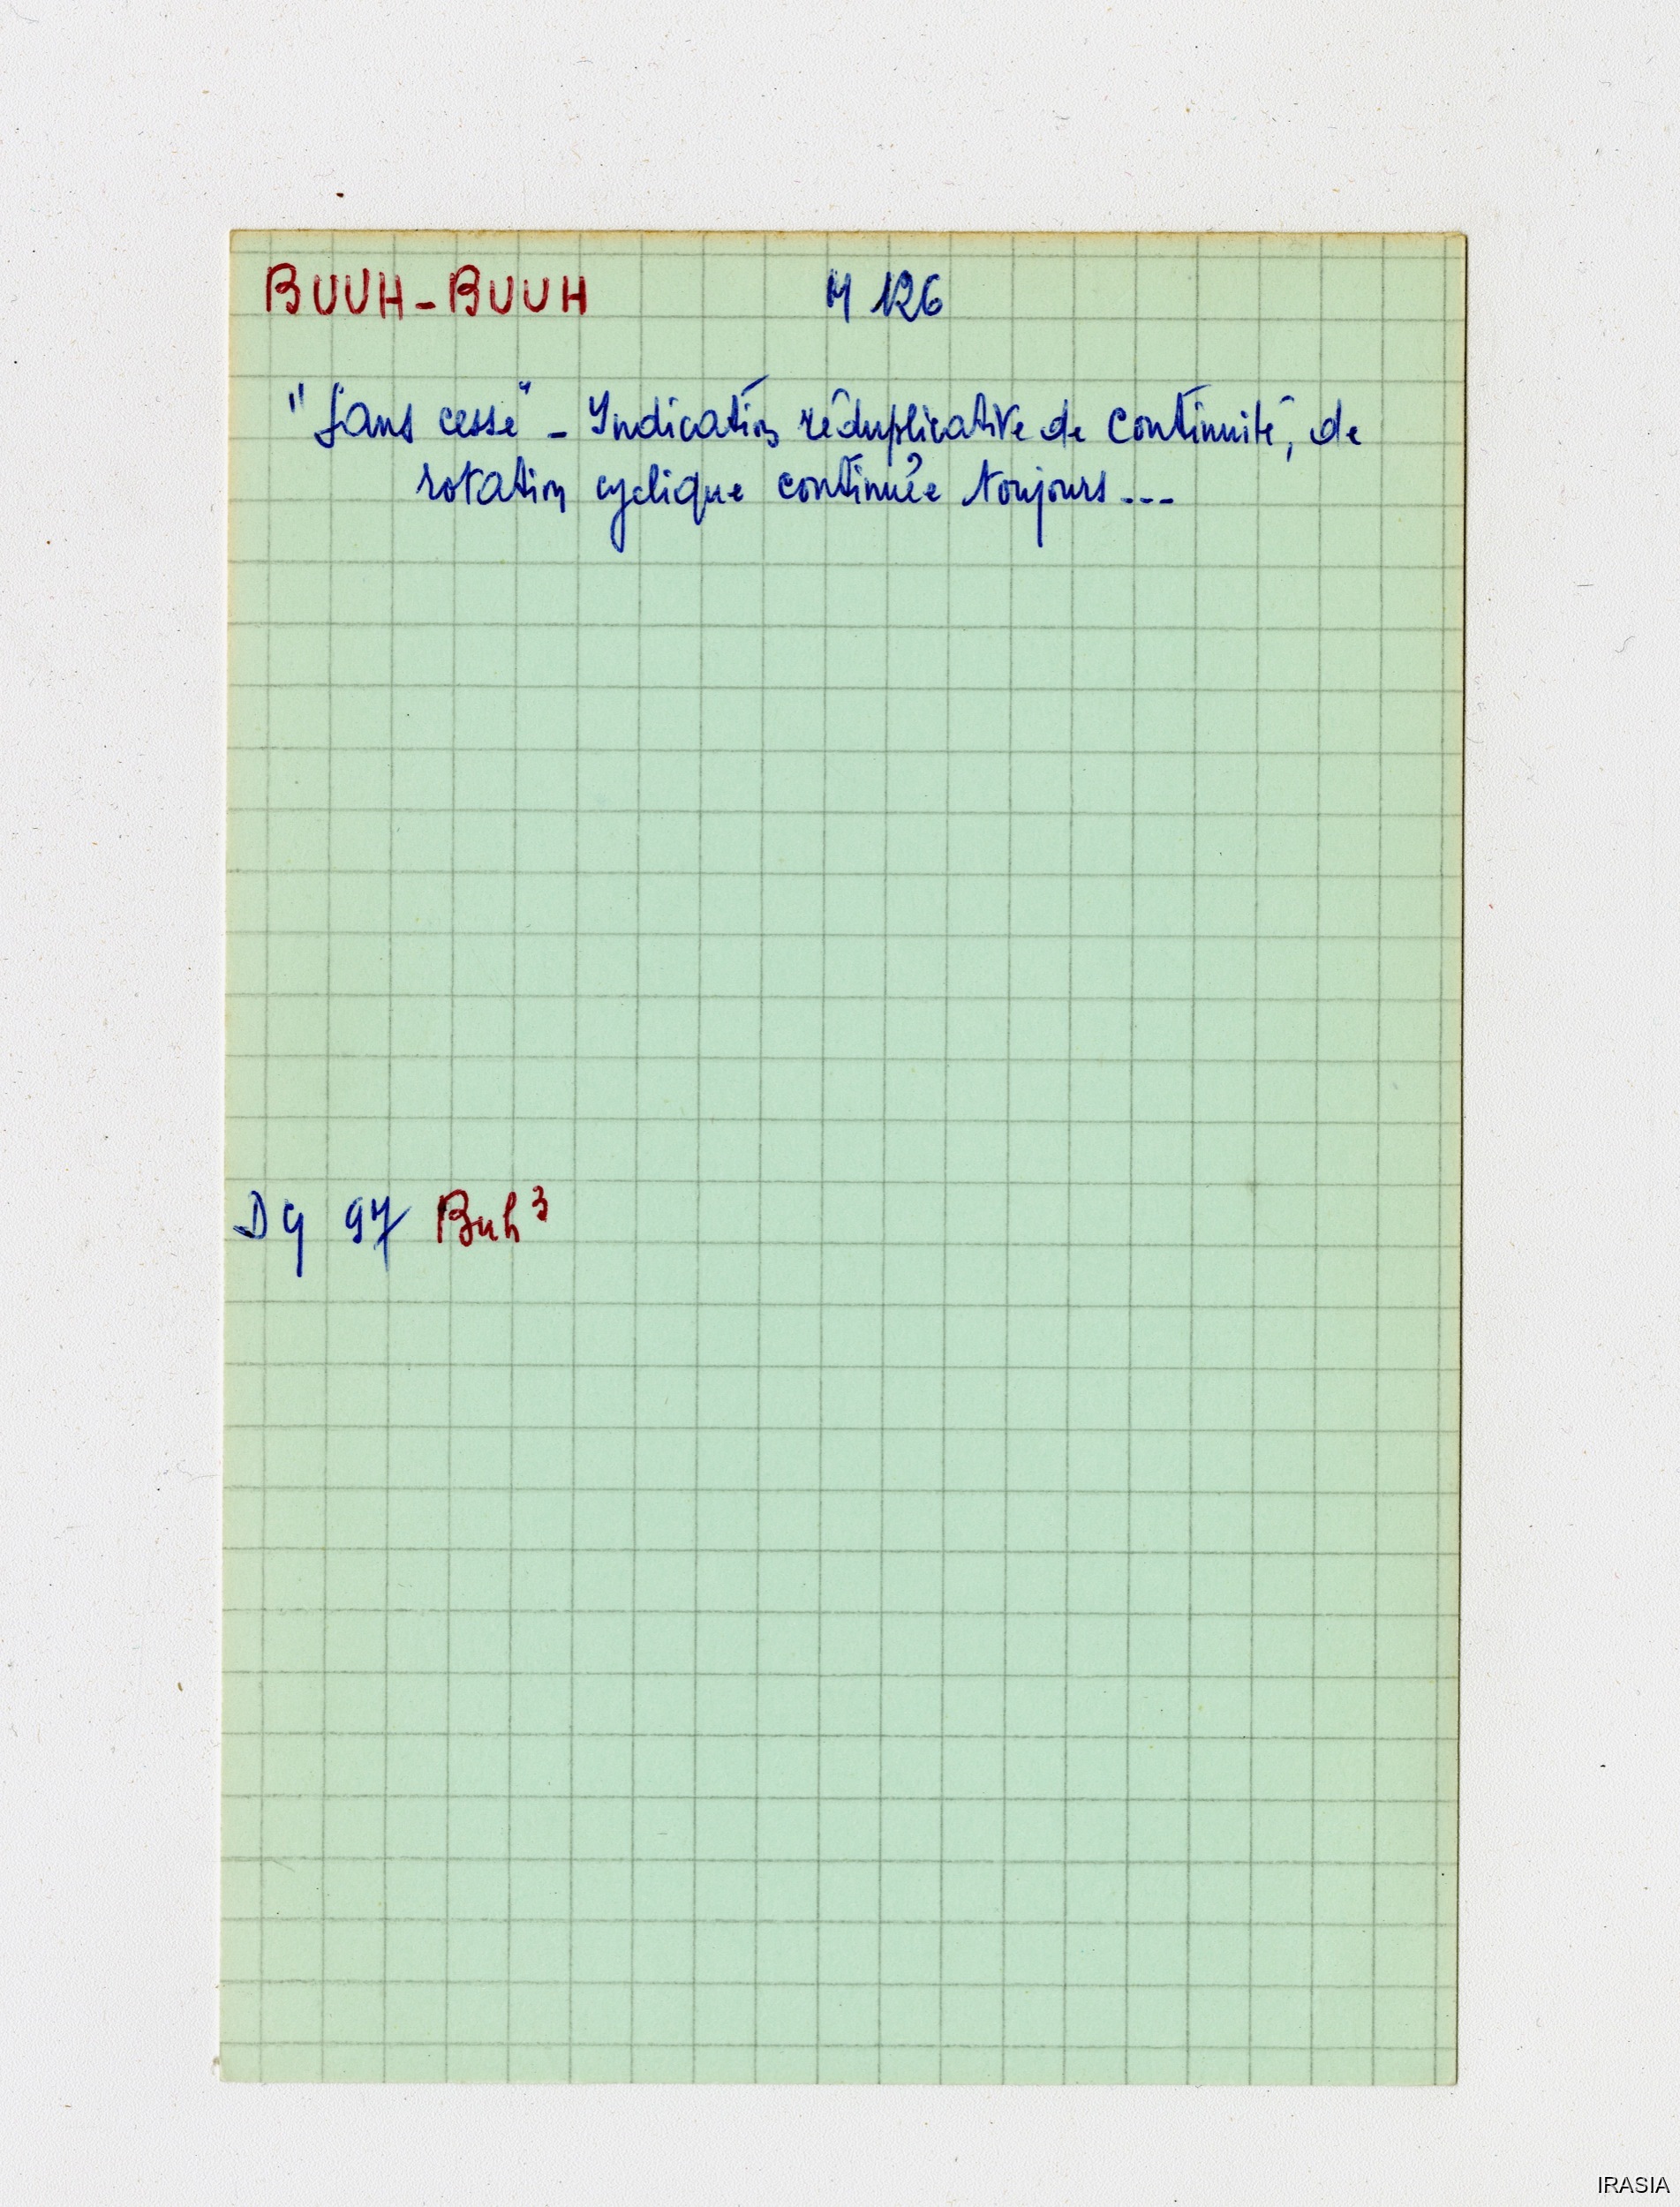 BUUH-BUUH M 126
"Sans cesse" - Indication réduplicative de continuité, de
rotation cyclique continuée toujours ---
DG 97 Buh³
IRASIA